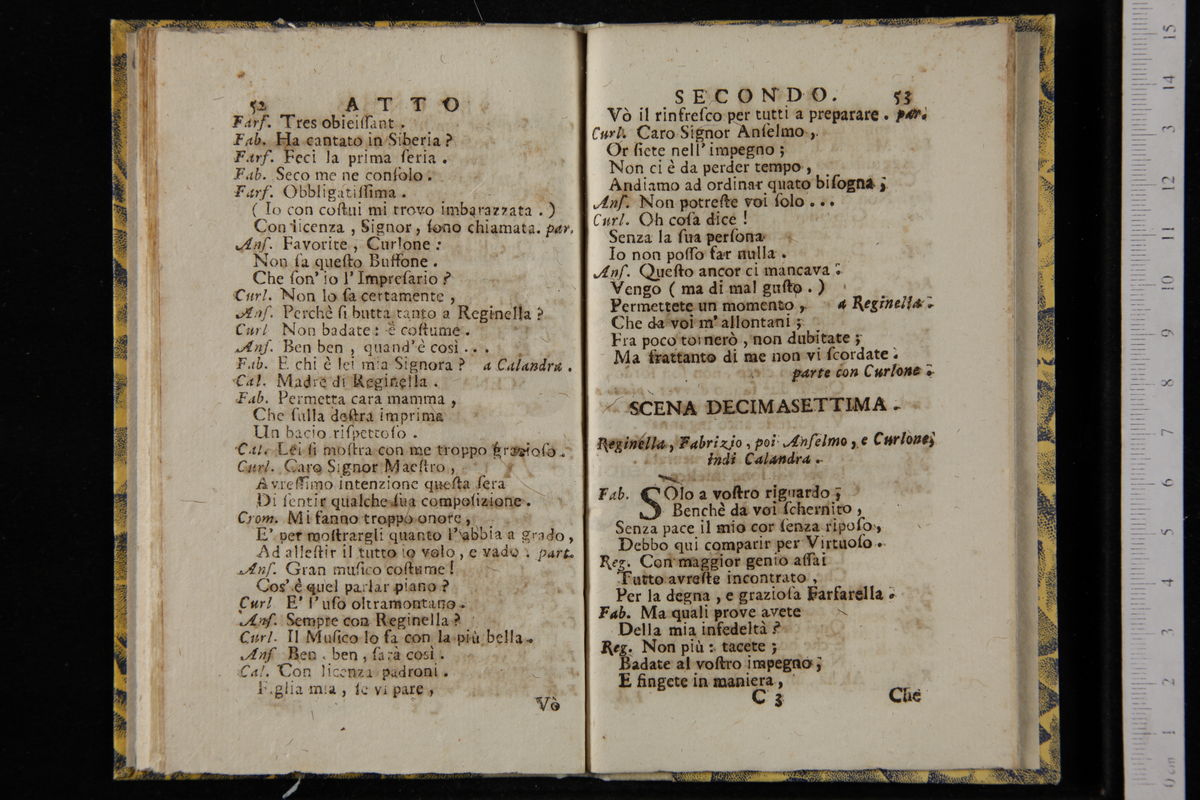 52 ATTO
Farſ. Tres obieiſſant.
Fab. Ha cantato in Siberia?
Farſ. Feci la prima ſeria.
Fab. Seco me ne conſolo.
Farſ. Obbligatiſſima.
(Io con coſtui mi trovo imbarazzata.)
Con licenza, Signor, ſono chiamata. par.
Anſ. Favorite, Curlone:
Non ſa queſto Buffone.
Che ſon' io l'Impreſario?
Curl. Non lo ſa certamente,
Anſ. Perchè ſi butta tanto a Reginella?
Curl Non badate: è coſtume.
Anſ. Ben ben, quand'è così...
Fab. E chi è lei mia Signora? a Calandra.
Cal. Madre di Reginella.
Fab. Permetta cara mamma,
Che ſulla deſtra imprima
Un bacio riſpettoſo.
Cal. Lei ſi moſtra con me troppo grazioſo.
Curl. Caro Signor Maeſtro,
Avreſſimo intenzione queſta ſera
Di ſentir qualche ſua compoſizione.
Crom. Mi fanno troppo onore,
E' per moſtrargli quanto l'abbia a grado,
Ad alleſtir il tutto io volo, e vado. part.
Anſ. Gran muſico coſtume!
Cos' è quel parlar piano?
Curl E' l'uſo oltramontano.
Anſ. Sempre con Reginella?
Curl. Il Muſico lo fa con la più bella.
Anſ Ben, ben, ſarà così.
Cal. Con licenza padroni.
Figlia mia, ſe vi pare,
Vò
SECONDO. 53
Vò il rinfreſco per tutti a preparare. par.
Curl. Caro Signor Anſelmo,
Or ſiete nell' impegno;
Non ci è da perder tempo,
Andiamo ad ordinar quato biſogna;
Anſ. Non potreſte voi ſolo...
Curl. Oh coſa dice!
Senza la ſua perſona
Io non poſſo far nulla.
Anſ. Queſto ancor ci mancava:
Vengo (ma di mal guſto.)
Permettete un momento, a Reginella.
Che da voi m'allontani;
Fra poco tornerò, non dubitate;
Ma frattanto di me non vi ſcordate.
parte con Curlone.
SCENA DECIMASETTIMA.
Reginella, Fabrizio, poi Anſelmo, e Curlone,
indi Calandra.
Fab. SOlo a voſtro riguardo;
Benchè da voi ſchernito,
Senza pace il mio cor ſenza ripoſo,
Debbo qui comparir per Virtuoſo.
Reg. Con maggior genio aſſai
Tutto avreſte incontrato,
Per la degna, e grazioſa Farfarella.
Fab. Ma quali prove avete
Della mia infedeltà?
Reg. Non più: tacete;
Badate al voſtro impegno;
E fingete in maniera,
C 3 Che